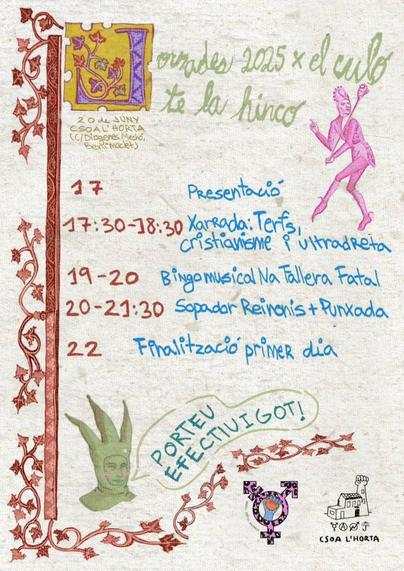 Jornades 2025 x el culo
te la hinco
20 de JUNY
CSOA L'HORTA
(C/Diógenes
Benimaclet)
17 Presentació
17:30-18:30 Xarrada: Terfs,
cristianisme i ultradreta
19-20 Bingo musical Na Tallera Fatal
20-21:30 Sopador Reinonis + Punxada
22 Finalització primer dia
PORTEU
EFECTIU I GOT!
CSOA L'HORTA